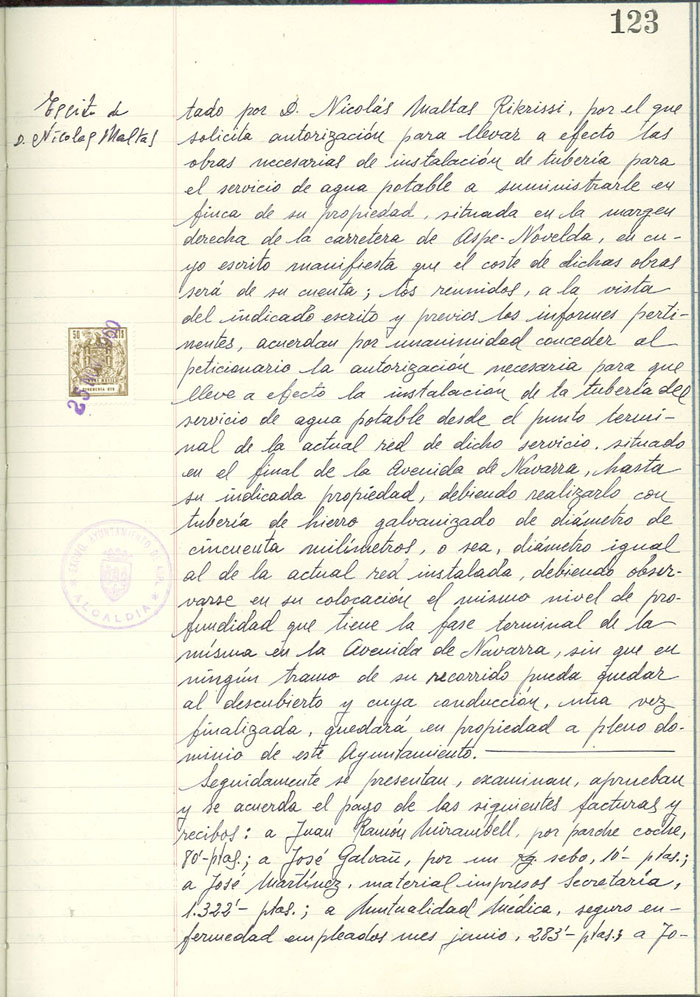 123
Escrito de
D. Nicolas Maltas
tado por D. Nicolás Maltas Rikrissi, por el que
solicita autorización para llevar a efecto las
obras necesarias de instalación de tubería para
el servicio de agua potable a suministrarle en
finca de su propiedad, situada en la margen
derecha de la carretera de Aspe-Novelda, en cu-
yo escrito manifiesta que el coste de dichas obras
será de su cuenta; los reunidos, a la vista
del indicado escrito y previos los informes perti-
nentes, acuerdan por unanimidad conceder al
peticionario la autorización necesaria para que
lleve a efecto la instalación de la tubería del
servicio de agua potable desde el punto termi-
nal de la actual red de dicho servicio, situado
en el final de la Avenida de Navarra, hasta
su indicada propiedad, debiendo realizarlo con
tubería de hierro galvanizado de diámetro de
cincuenta milímetros, o sea, diámetro igual
al de la actual red instalada, debiendo obser-
varse en su colocación el mismo nivel de pro-
fundidad que tiene la fase terminal de la
misma en la Avenida de Navarra, sin que en
ningún tramo de su recorrido pueda quedar
al descubierto y cuya conducción, una vez
finalizada, quedará en propiedad a pleno do-
minio de este Ayuntamiento.
Seguidamente se presentan, examinan, aprueban
y se acuerda el pago de las siguientes facturas y
recibos: a Juan Ramón Mirambell, por parche coche,
80'- ptas.; a José Galvañ, por un sebo, 10'- ptas.;
a José Martínez, material impresos Secretaría,
1.322'- ptas.; a Mutualidad Médica, seguro en-
fermedad empleados mes junio, 283'- ptas.; a Jo-
50
25
AYUNTAMIENTO DE
ALCALDIA